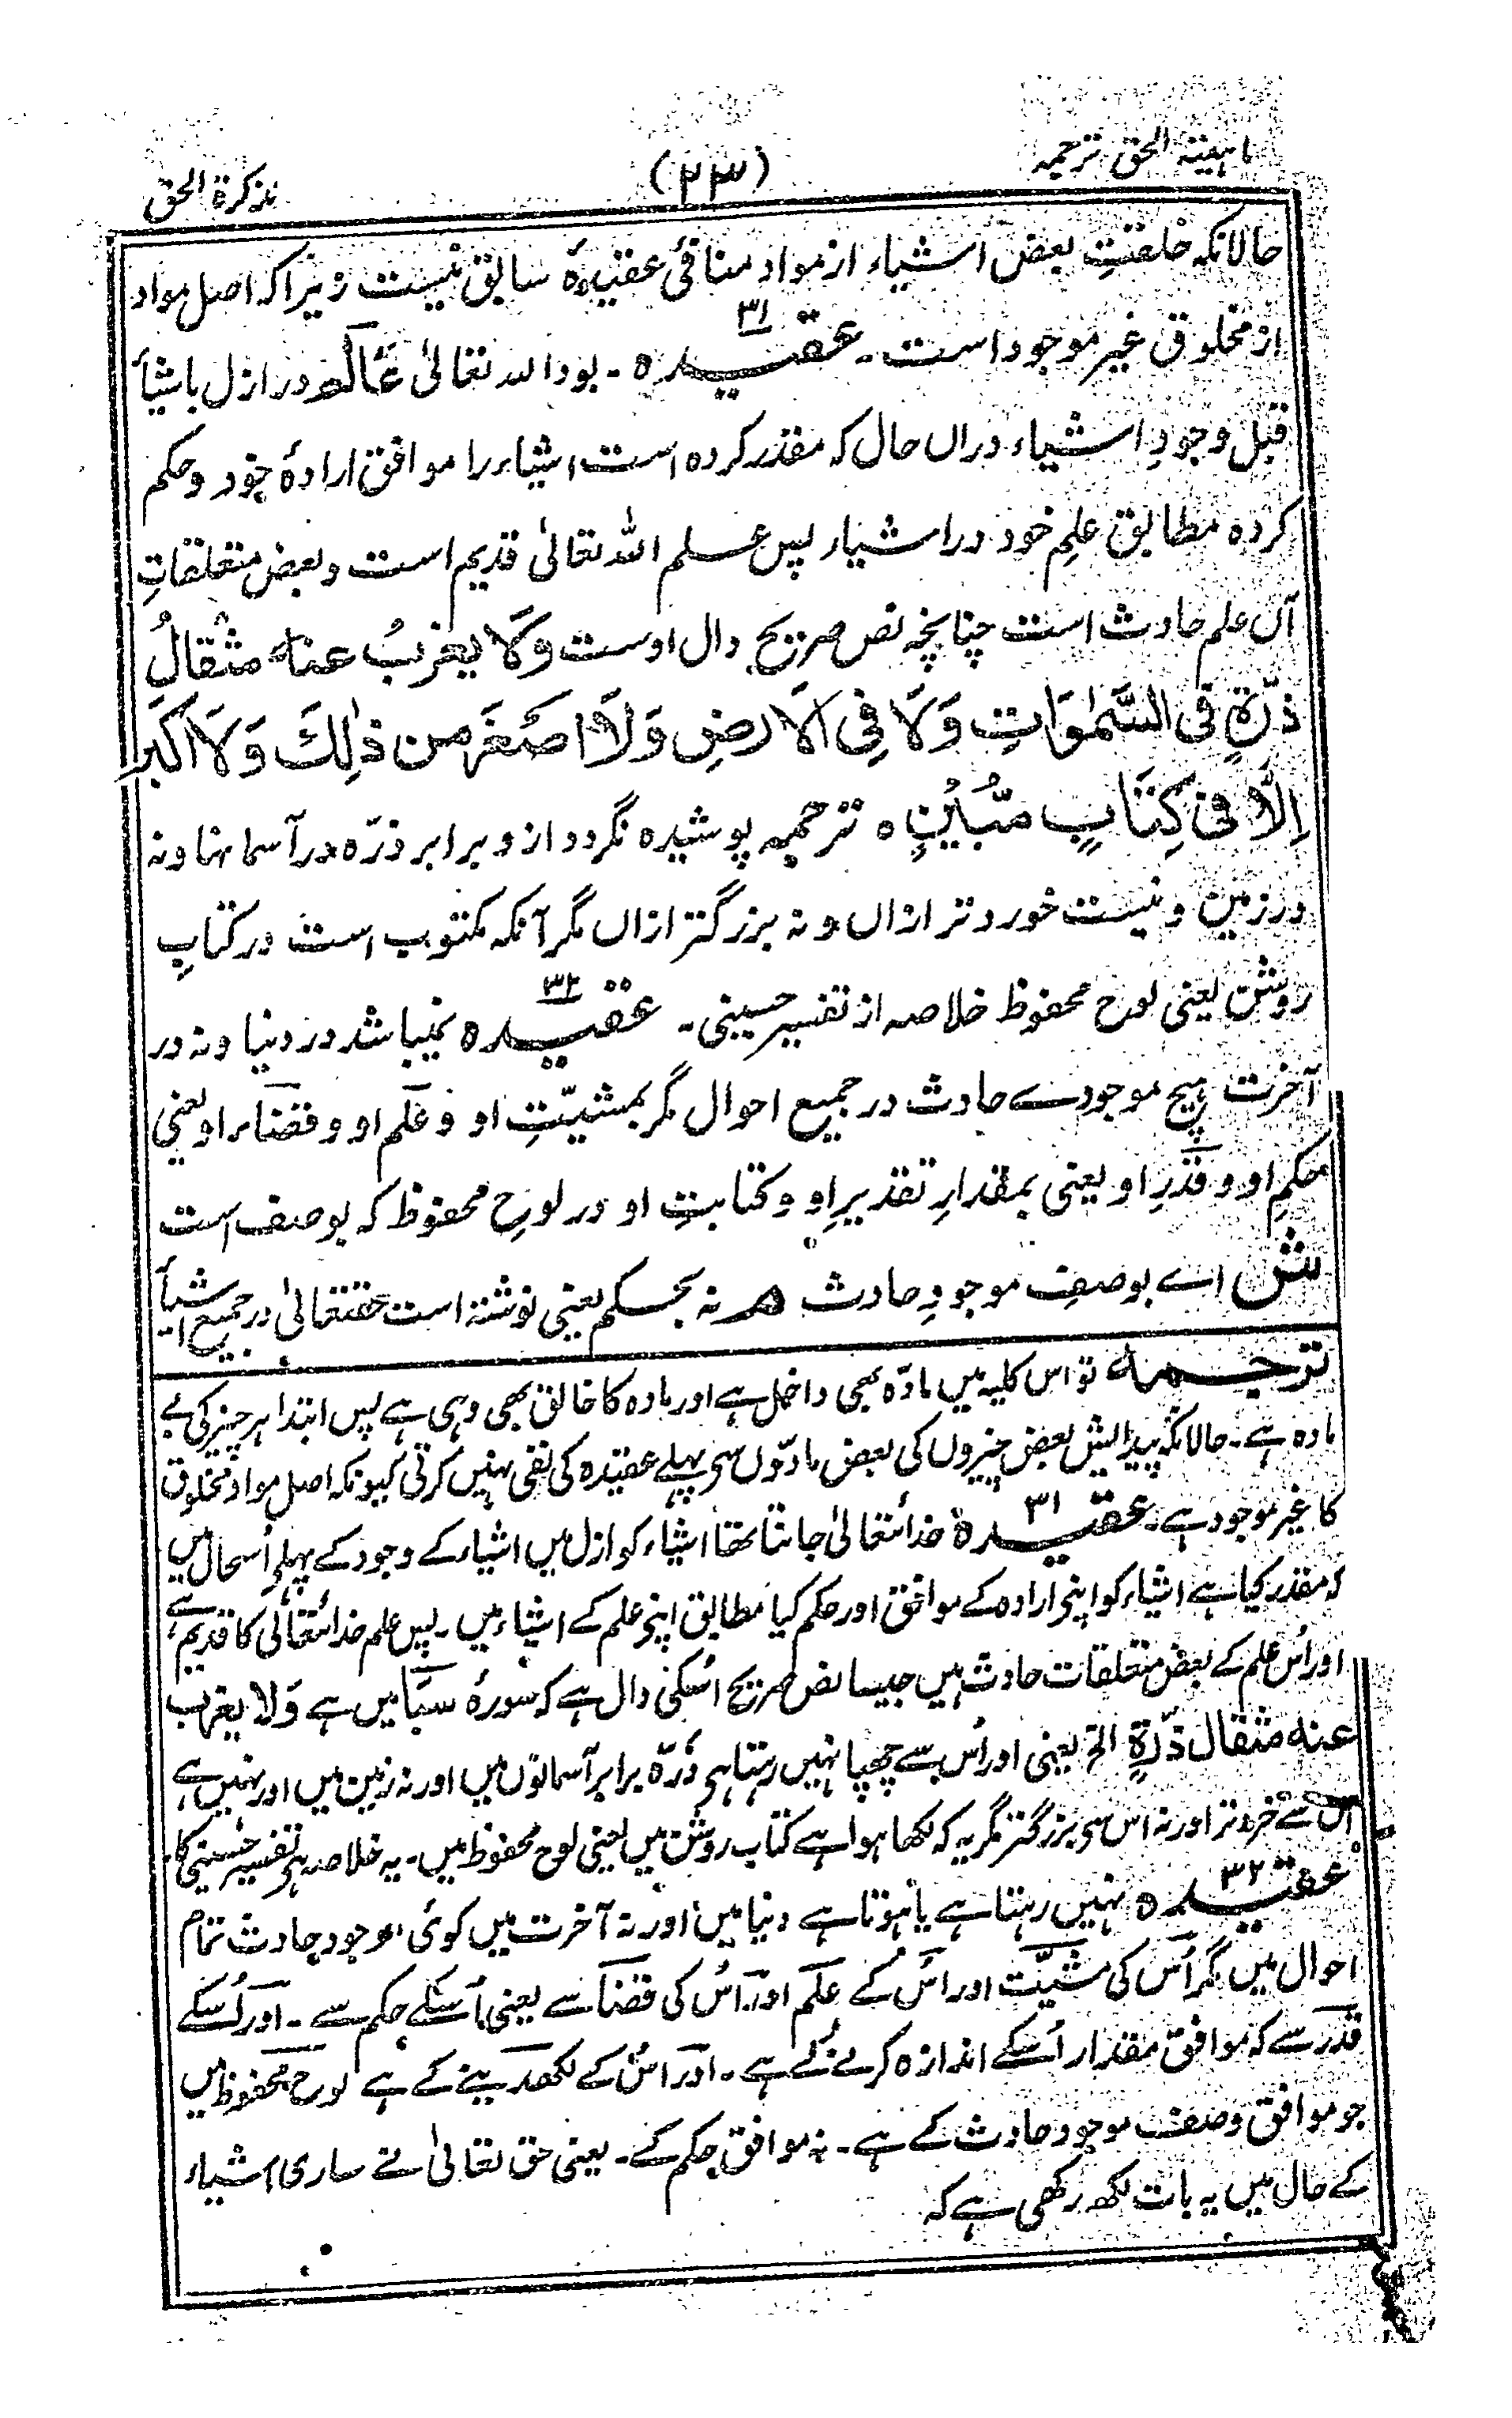 ماہیتہ الحق ترجمہ
(۲۳)
تذکرۃ الحق
حالانکہ خلقتِ بعض اشیاء از مواد منافیٔ عقیدۂ سابق نیست زیراکہ اصل مواد
از مخلوق غیر موجود است ۔ عقیدہ ۳۱ ۔ بود اللہ تعالیٰ عَالم در ازل باشیأ
قبل وجودِ اشیاء دراں حال کہ مقدر کردہ است اشیاء را موافق ارادۂ خود و حکم
کردہ مطابق علمِ خود در اشیاء پس علم اللہ تعالیٰ قدیم است و بعض متعلقاتِ
آں علم حادث است چنانچہ نص صریح دال اوست وَلَا یعزبُ عنہ مثقالُ
ذرّۃٍ فی السَّمٰوَاتِ وَلَا فِی الاَرضِ وَلَا اصَغَر من ذٰلِكَ وَلَا اَكبَر
اِلَّا فی كِتَابٍ مّبُینٍ ہ ترجمہ پوشیدہ نگردد ازو برابر ذرّہ در آسمانہا ونہ
در زمین و نیست خورد تر ازاں و نہ بزرگتر ازاں مگر آنکہ مکتوب است در کتابِ
روشن یعنی لوح محفوظ خلاصہ از تفسیر حسینی ۔ عقیدہ ۳۲ نمیباشد در دنیا ونہ در
آخرت ہیچ موجودے حادث در جمیع احوال مگر بمشیّتِ او و علَم او و قضاء او یعنی
حکمِ او و قدَرِ او یعنی بمقدارِ تقدیرِ او و کتابتِ او در لوحِ محفوظ کہ بوصف است
ش اے بوصفِ موجودِ حادث ھر نہ بحکم یعنی نوشتہ است حقتعالیٰ در جمیع اشیأ
ترجمہ تو اس کلیہ میں مادّہ بھی داخل ہے اور مادہ کا خالق بھی وہی ہے پس ابتدا ہر چیز کی بے
مادہ ہے ۔ حالانکہ پیدایش بعض چیزوں کی بعض مادّوں سے پہلے عقیدہ کی نفی نہیں کرتی کیونکہ اصل مواد مخلوق
کا غیر موجود ہے ۔ عقیدہ ۳۱ خدائتعالیٰ جانتا تھا اشیاء کو ازل میں اشیاء کے وجود کے پہلے اُسحال میں
کہ مقدر کیا ہے اشیاء کو اپنے ارادہ کے موافق اور حکم کیا مطابق اپنے علم کے اشیاء میں ۔ پس علم خدائتعالیٰ کا قدیم ہے
اور اُس علم کے بعض متعلقات حادث ہیں جیسا نص صریح اسکی دال ہے کہ سورۂ سبَا میں ہے وَلا یعزب
عنہ مثقال ذرّۃٍ الخ یعنی اور اُس سے چھپا نہیں رہتا ہے ذرّہ برابر آسمانوں میں اور نہ زمین میں اور نہیں ہے
اس سے خرد تر اور نہ اس سے بزرگتر مگر یہ کہ لکھا ہوا ہے کتاب روشن میں یعنی لوح محفوظ میں ۔ یہ خلاصہ ہے تفسیر حسینی کا ۔
عقیدہ ۳۲ نہیں رہتا ہے یا ہوتا ہے دنیا میں اور نہ آخرت میں کوئی موجود حادث تمام
احوال میں مگر اُس کی مشیَّت اور اُس کے علَم اور اُس کی قضَا سے یعنی اُسکے حکم سے ۔ اور اُسکے
قدَر سے کہ موافق مقدار اُسکے اندازہ کرنے کے ہے ۔ اور اُس کے لکھدینے کے ہے لوح محفوظ میں
جو موافق وصف موجود حادث کے ہے ۔ نہ موافق حکم کے ۔ یعنی حق تعالیٰ نے ساری اشیاء
کے حال میں یہ بات لکھ رکھی ہے کہ